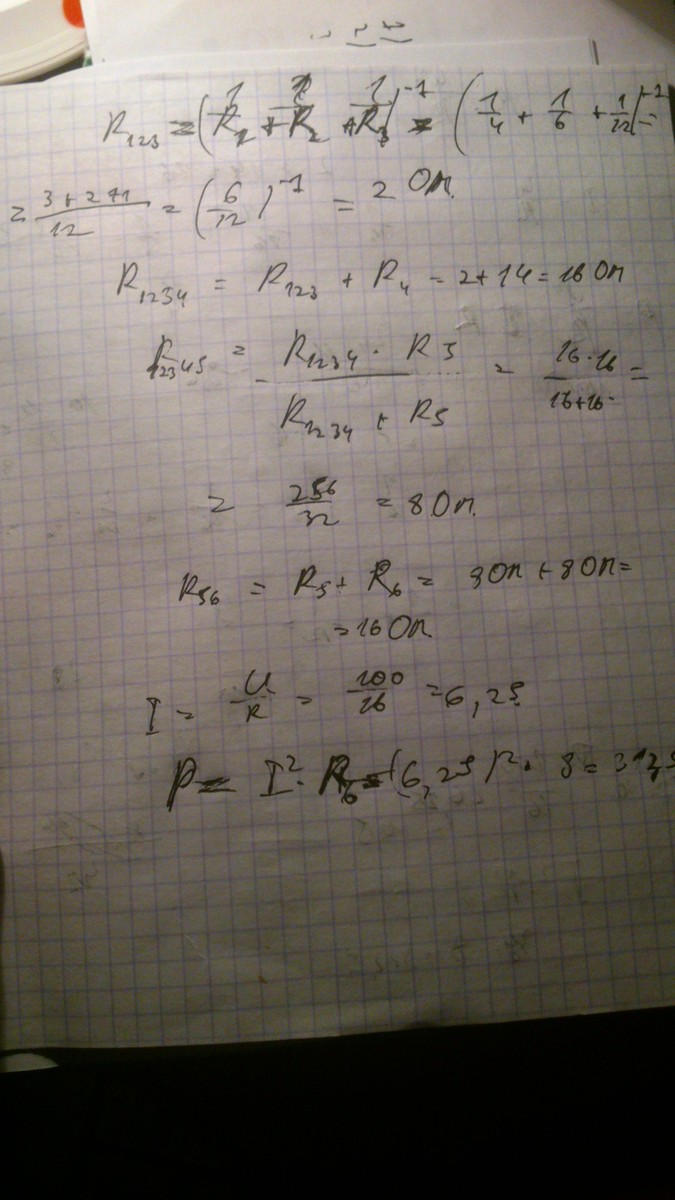 R₁₂₃ = (1/R₁ + 1/R₂ + 1/R₃)⁻¹ = (1/4 + 1/6 + 1/12)⁻¹ =
= 3+2+1/12 = (6/12)⁻¹ = 2 Ом
R₁₂₃₄ = R₁₂₃ + R₄ = 2+14 = 16 Ом
R₁₂₃₄₅ = R₁₂₃₄ · R5 / R₁₂₃₄ + R5 = 16·16 / 16+16 =
= 256/32 = 8 Ом
R₅₆ = R₅ + R₆ = 8 Ом + 8 Ом =
= 16 Ом
I = U/R = 100/16 = 6,25
P = I² · R₆ = (6,25)² · 8 =